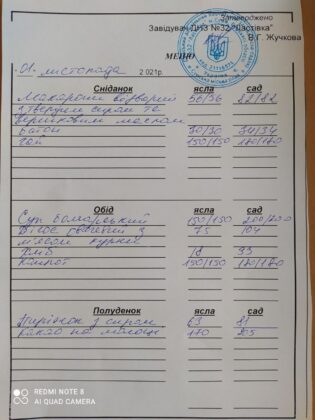 Затверджено
Завідувач ДНЗ №32 "Ластівка"
В.Г. Жучкова
МЕНЮ
01 листопада 2021р.
Сніданок ясла сад
Макарони відварні 56/56 82/82
з твердим сиром та
вершковим маслом
Батон 30/30 34/34
Чай 150/150 170/170
Обід ясла сад
Суп болгарський 150/150 200/200
з
м'ясом курки 75 104
18 33
Компот 150/150 170/170
Полуденок ясла сад
Пиріжок з сиром 63 81
Какао на молоці 170 205
REDMI NOTE 8
AI QUAD CAMERA